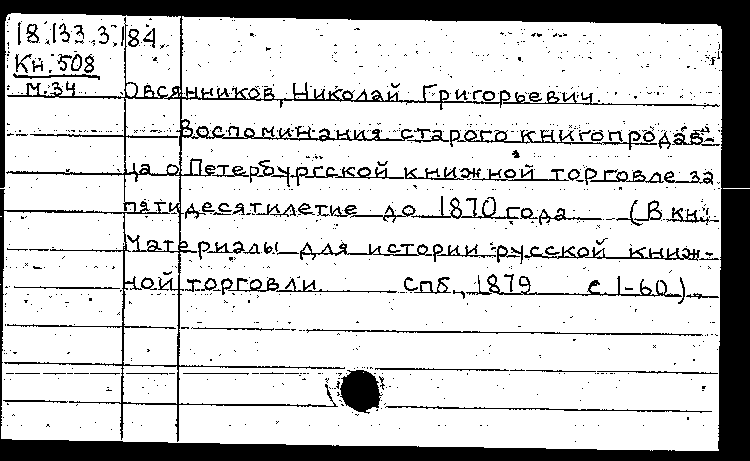 18.133.3.184.
Кн. 508
М.34
Овсянников, Николай Григорьевич
Воспоминания старого книгопродав-
ца о Петербургской книжной торговле за
пятидесятилетие до 1870 года (В кн.:
Материалы для истории русской книж-
ной торговли. Спб., 1879 с 1-60).